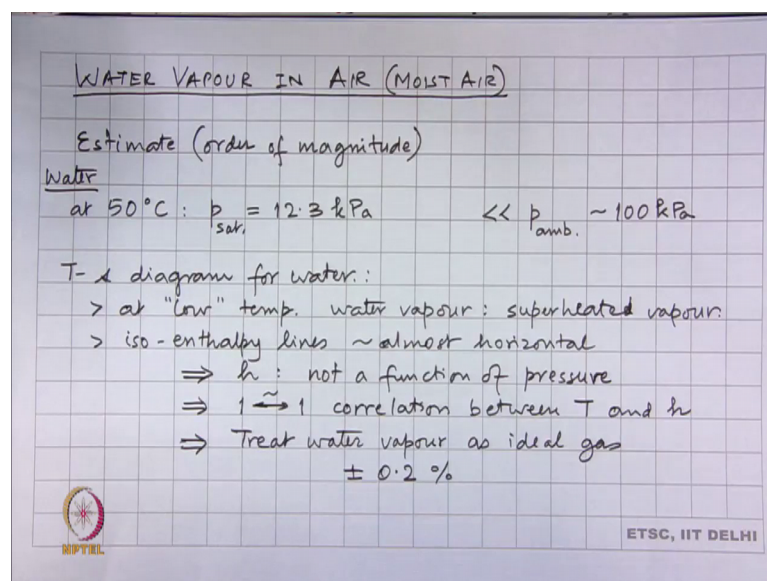 WATER VAPOUR IN AIR (MOIST AIR)
Estimate (order of magnitude)
Water
at 50°C : p_sat. = 12.3 kPa << p_amb. ~ 100 kPa
T-s diagram for water.:
> at "low" temp. water vapour : superheated vapour.
> iso-enthalpy lines ~ almost horizontal
⇒ h : not a function of pressure
⇒ 1 ↔̃ 1 correlation between T and h
⇒ Treat water vapour as ideal gas
± 0.2 %
NPTEL
ETSC, IIT DELHI